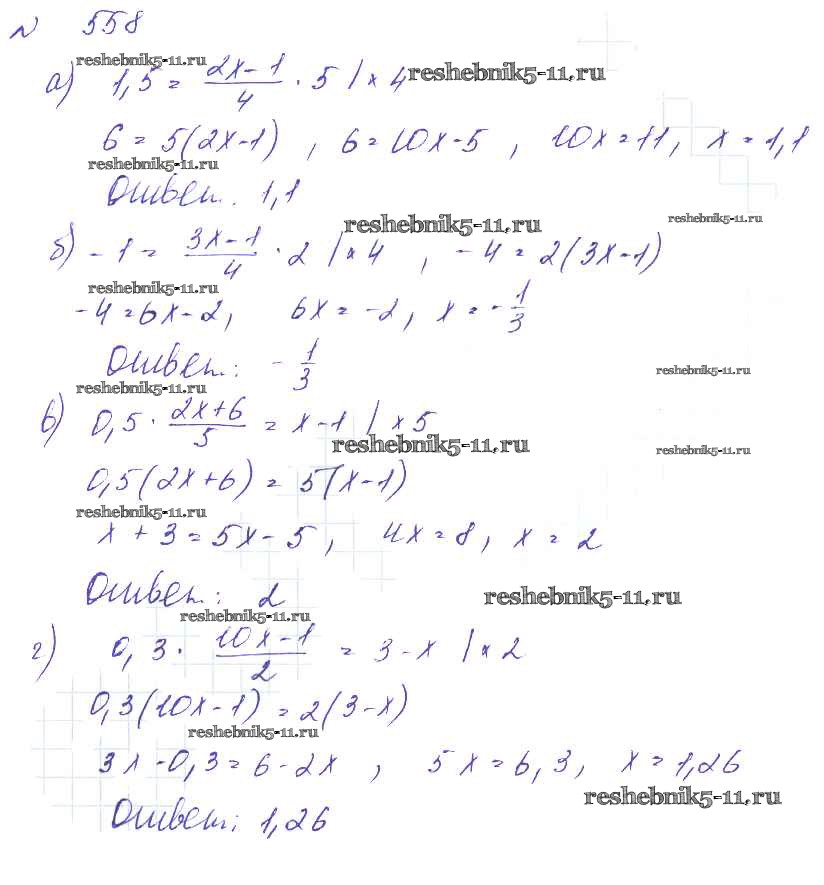 № 558
reshebnik5-11.ru
а) 1,5 = (2x-1)/4 · 5 | × 4 reshebnik5-11.ru
6 = 5(2x-1) , 6 = 10x-5 , 10x = 11, x = 1,1
reshebnik5-11.ru
Ответ. 1,1
reshebnik5-11.ru reshebnik5-11.ru
б) -1 = (3x-1)/4 · 2 | × 4 , -4 = 2(3x-1)
reshebnik5-11.ru
-4 = 6x-2, 6x = -2, x = -1/3
Ответ: -1/3
reshebnik5-11.ru
reshebnik5-11.ru
в) 0,5 · (2x+6)/5 = x-1 | × 5
reshebnik5-11.ru reshebnik5-11.ru
0,5(2x+6) = 5(x-1)
reshebnik5-11.ru
x + 3 = 5x - 5, 4x = 8, x = 2
Ответ: 2
reshebnik5-11.ru
reshebnik5-11.ru
г) 0,3 · (10x-1)/2 = 3-x | × 2
0,3(10x-1) = 2(3-x)
reshebnik5-11.ru
3x - 0,3 = 6 - 2x , 5x = 6,3, x = 1,26
reshebnik5-11.ru
Ответ: 1,26